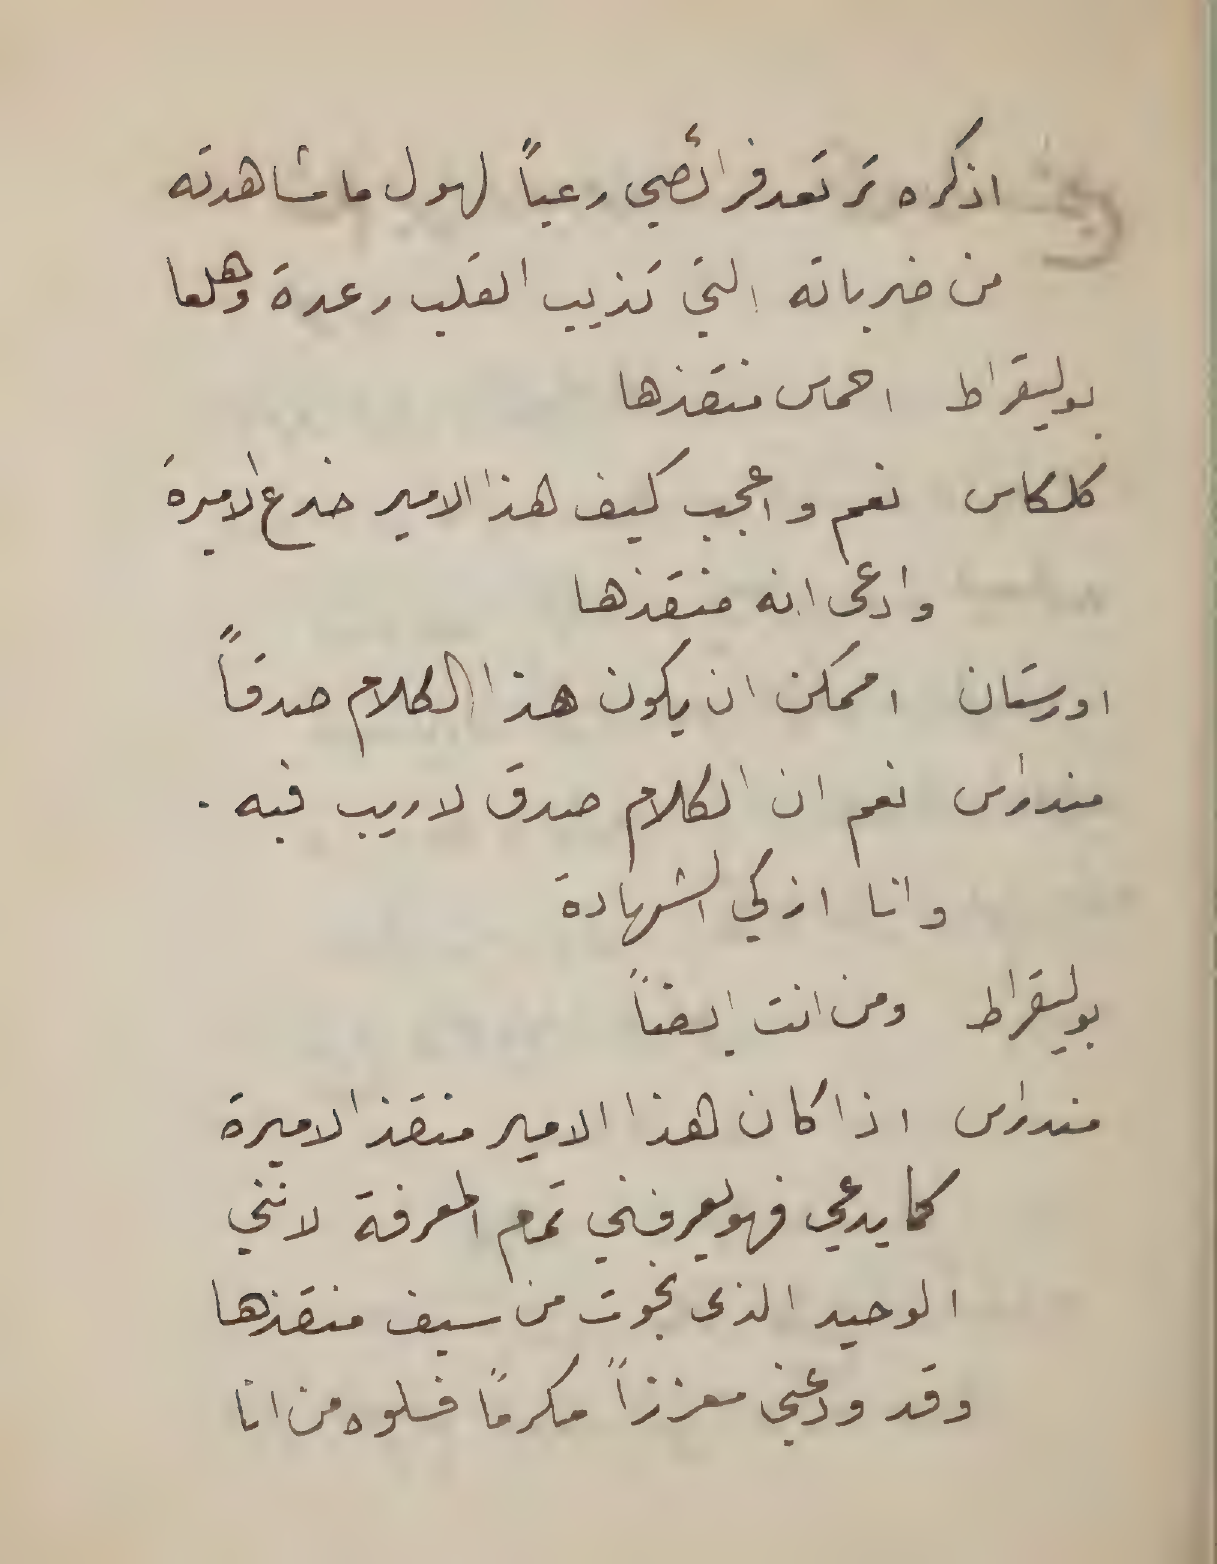 اذكره ترتعد فرائصي رعباً لهول ما شاهدته
من ضرباته التي تذيب القلب رعدة وهلعا
بوليقراط احماس منقذها
كلكاس نعم واعجب كيف هذا الامير خدع الاميرة
وادعى انه منقذها
اورستان اممكن ان يكون هذا الكلام صدقاً
مندراس نعم ان الكلام صدق لا ريب فيه .
وانا ازكي الشهادة
بوليقراط ومن انت ايضاً
مندراس اذا كان هذا الامير منقذ الاميرة
كما يدعي فهو يعرفني تمام المعرفة لانني
الوحيد الذى نجوت من سيف منقذها
وقد ودعني معززاً مكرماً فسلوه من انا